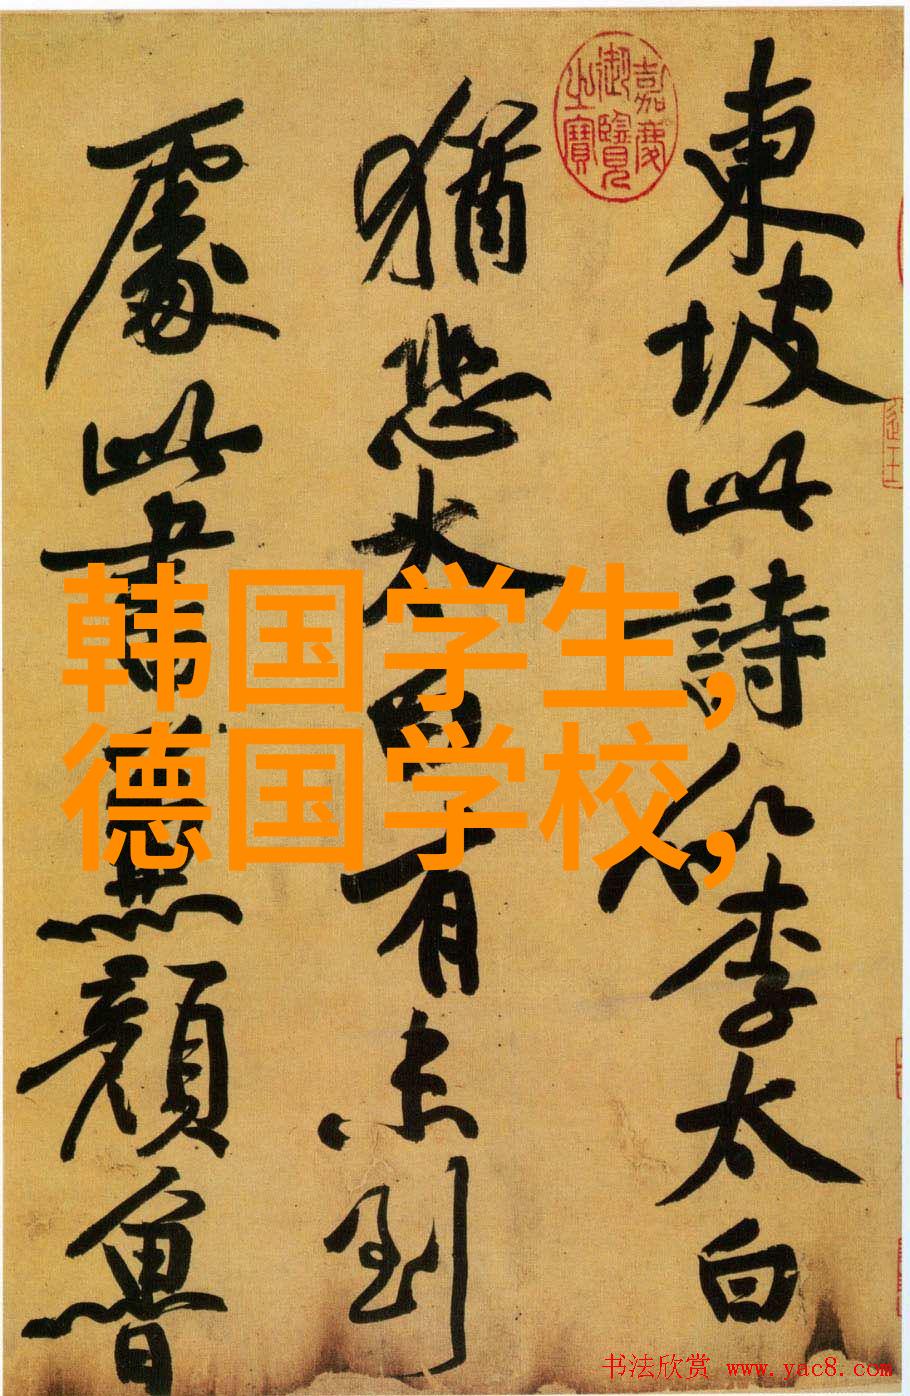 東坡此詩似李太白
猶恐太白有未到
處此書兼顏魯
嘉慶
御覽
之寶
韩国学生,
德国学校,
书法欣赏 www.yac8.com